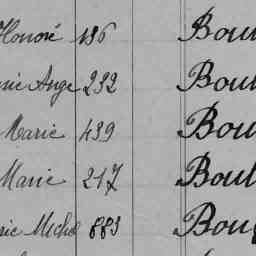 Honoré 186 Bou
rie Ange 232 Bou
Marie 439 Bou
Marie 217 Boul
rie Michel 883 Boug